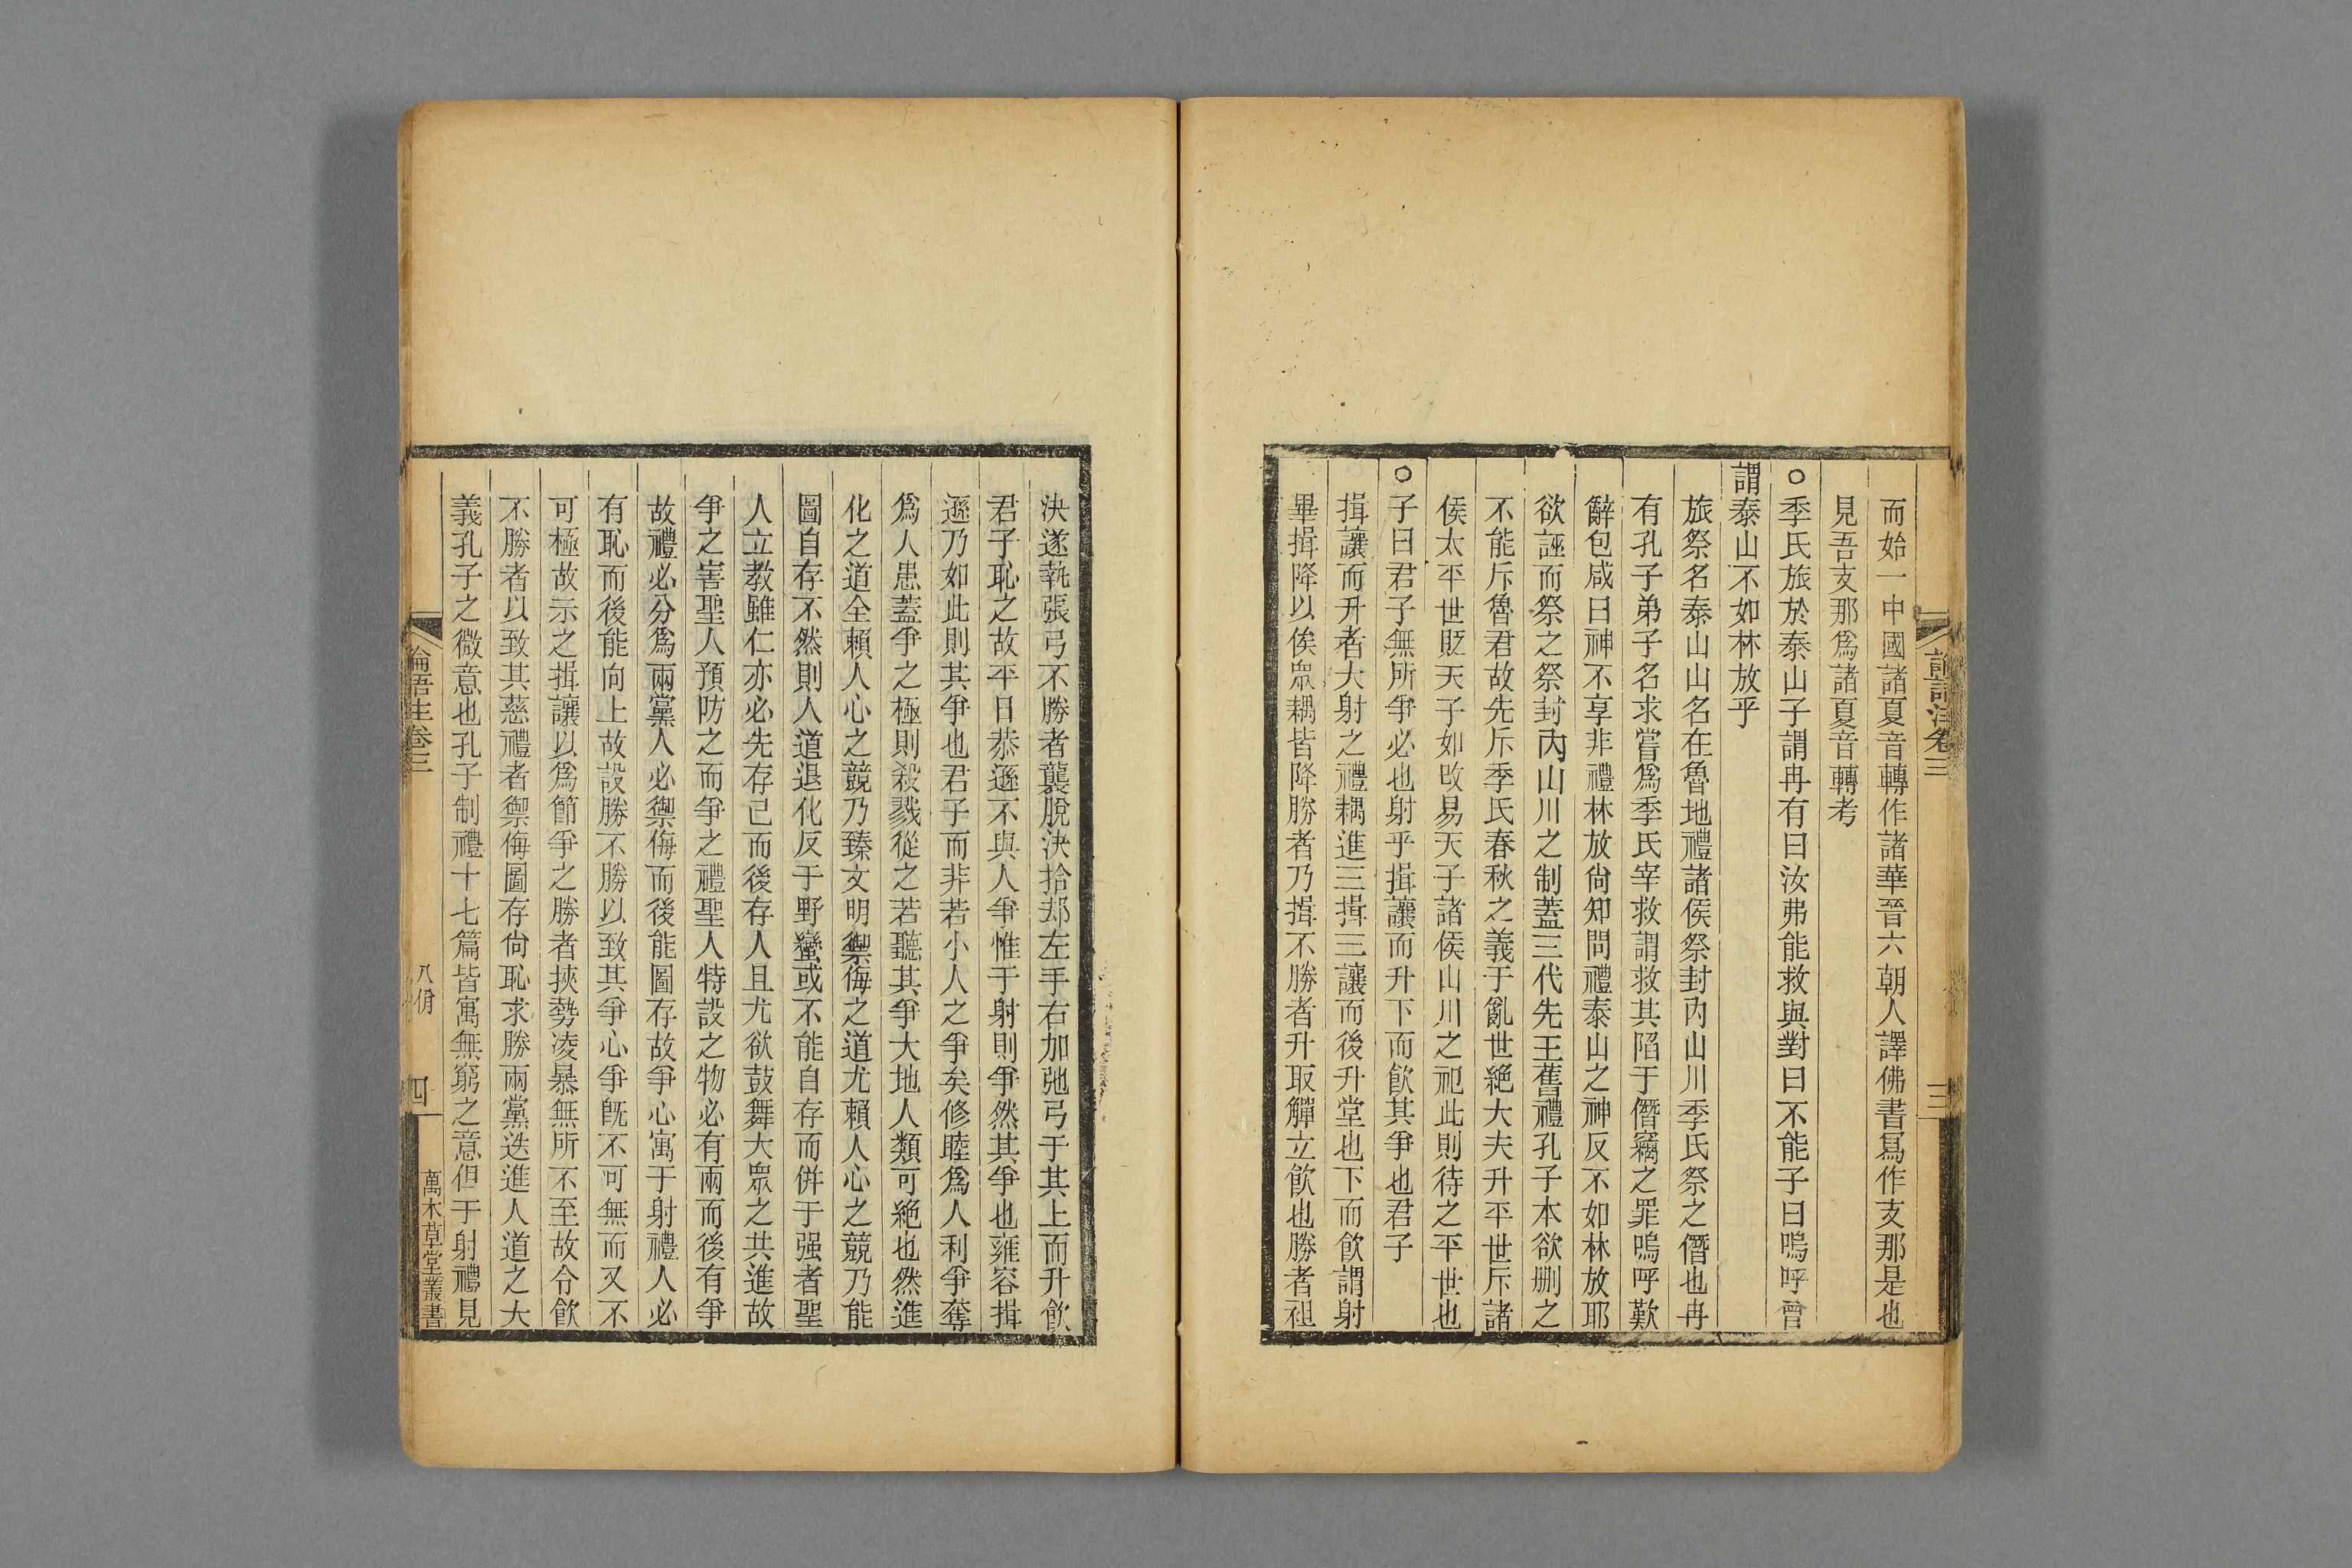 論語注卷三
三
而始一中國諸夏音轉作諸華晉六朝人譯佛書寫作支那是也
見吾支那爲諸夏音轉考
○季氏旅於泰山子謂冉有曰汝弗能救與對曰不能子曰嗚呼曾
謂泰山不如林放乎
旅祭名泰山山名在魯地禮諸侯祭封內山川季氏祭之僭也冉
有孔子弟子名求嘗爲季氏宰救謂救其陷于僭竊之罪嗚呼歎
辭包咸曰神不享非禮林放尙知問禮泰山之神反不如林放耶
欲誣而祭之祭封內山川之制蓋三代先王舊禮孔子本欲删之
不能斥魯君故先斥季氏春秋之義于亂世絕大夫升平世斥諸
侯太平世貶天子如改易天子諸侯山川之祀此則待之平世也
○子曰君子無所爭必也射乎揖讓而升下而飮其爭也君子
揖讓而升者大射之禮耦進三揖三讓而後升堂也下而飮謂射
畢揖降以俟眾耦皆降勝者乃揖不勝者升取觶立飮也勝者袒
決遂執張弓不勝者襲脫決拾却左手右加弛弓于其上而升飮
君子恥之故平日恭遜不與人爭惟于射則爭然其爭也雍容揖
遜乃如此則其爭也君子而非若小人之爭矣修睦爲人利爭奪
爲人患蓋爭之極則殺戮從之若聽其爭大地人類可絕也然進
化之道全賴人心之競乃臻文明禦侮之道尤賴人心之競乃能
圖自存不然則人道退化反于野蠻或不能自存而併于强者聖
人立教雖仁亦必先存己而後存人且尤欲鼓舞大眾之共進故
爭之害聖人預防之而爭之禮聖人特設之物必有兩而後有爭
故禮必分爲兩黨人必禦侮而後能圖存故爭心寓于射禮人必
有恥而後能向上故設勝不勝以致其爭心爭旣不可無而又不
可極故示之揖讓以爲節爭之勝者挾勢凌暴無所不至故令飮
不勝者以致其慈禮者禦侮圖存尙恥求勝兩黨迭進人道之大
義孔子之微意也孔子制禮十七篇皆寓無窮之意但于射禮見
論語注卷三
八佾
四
萬木草堂叢書